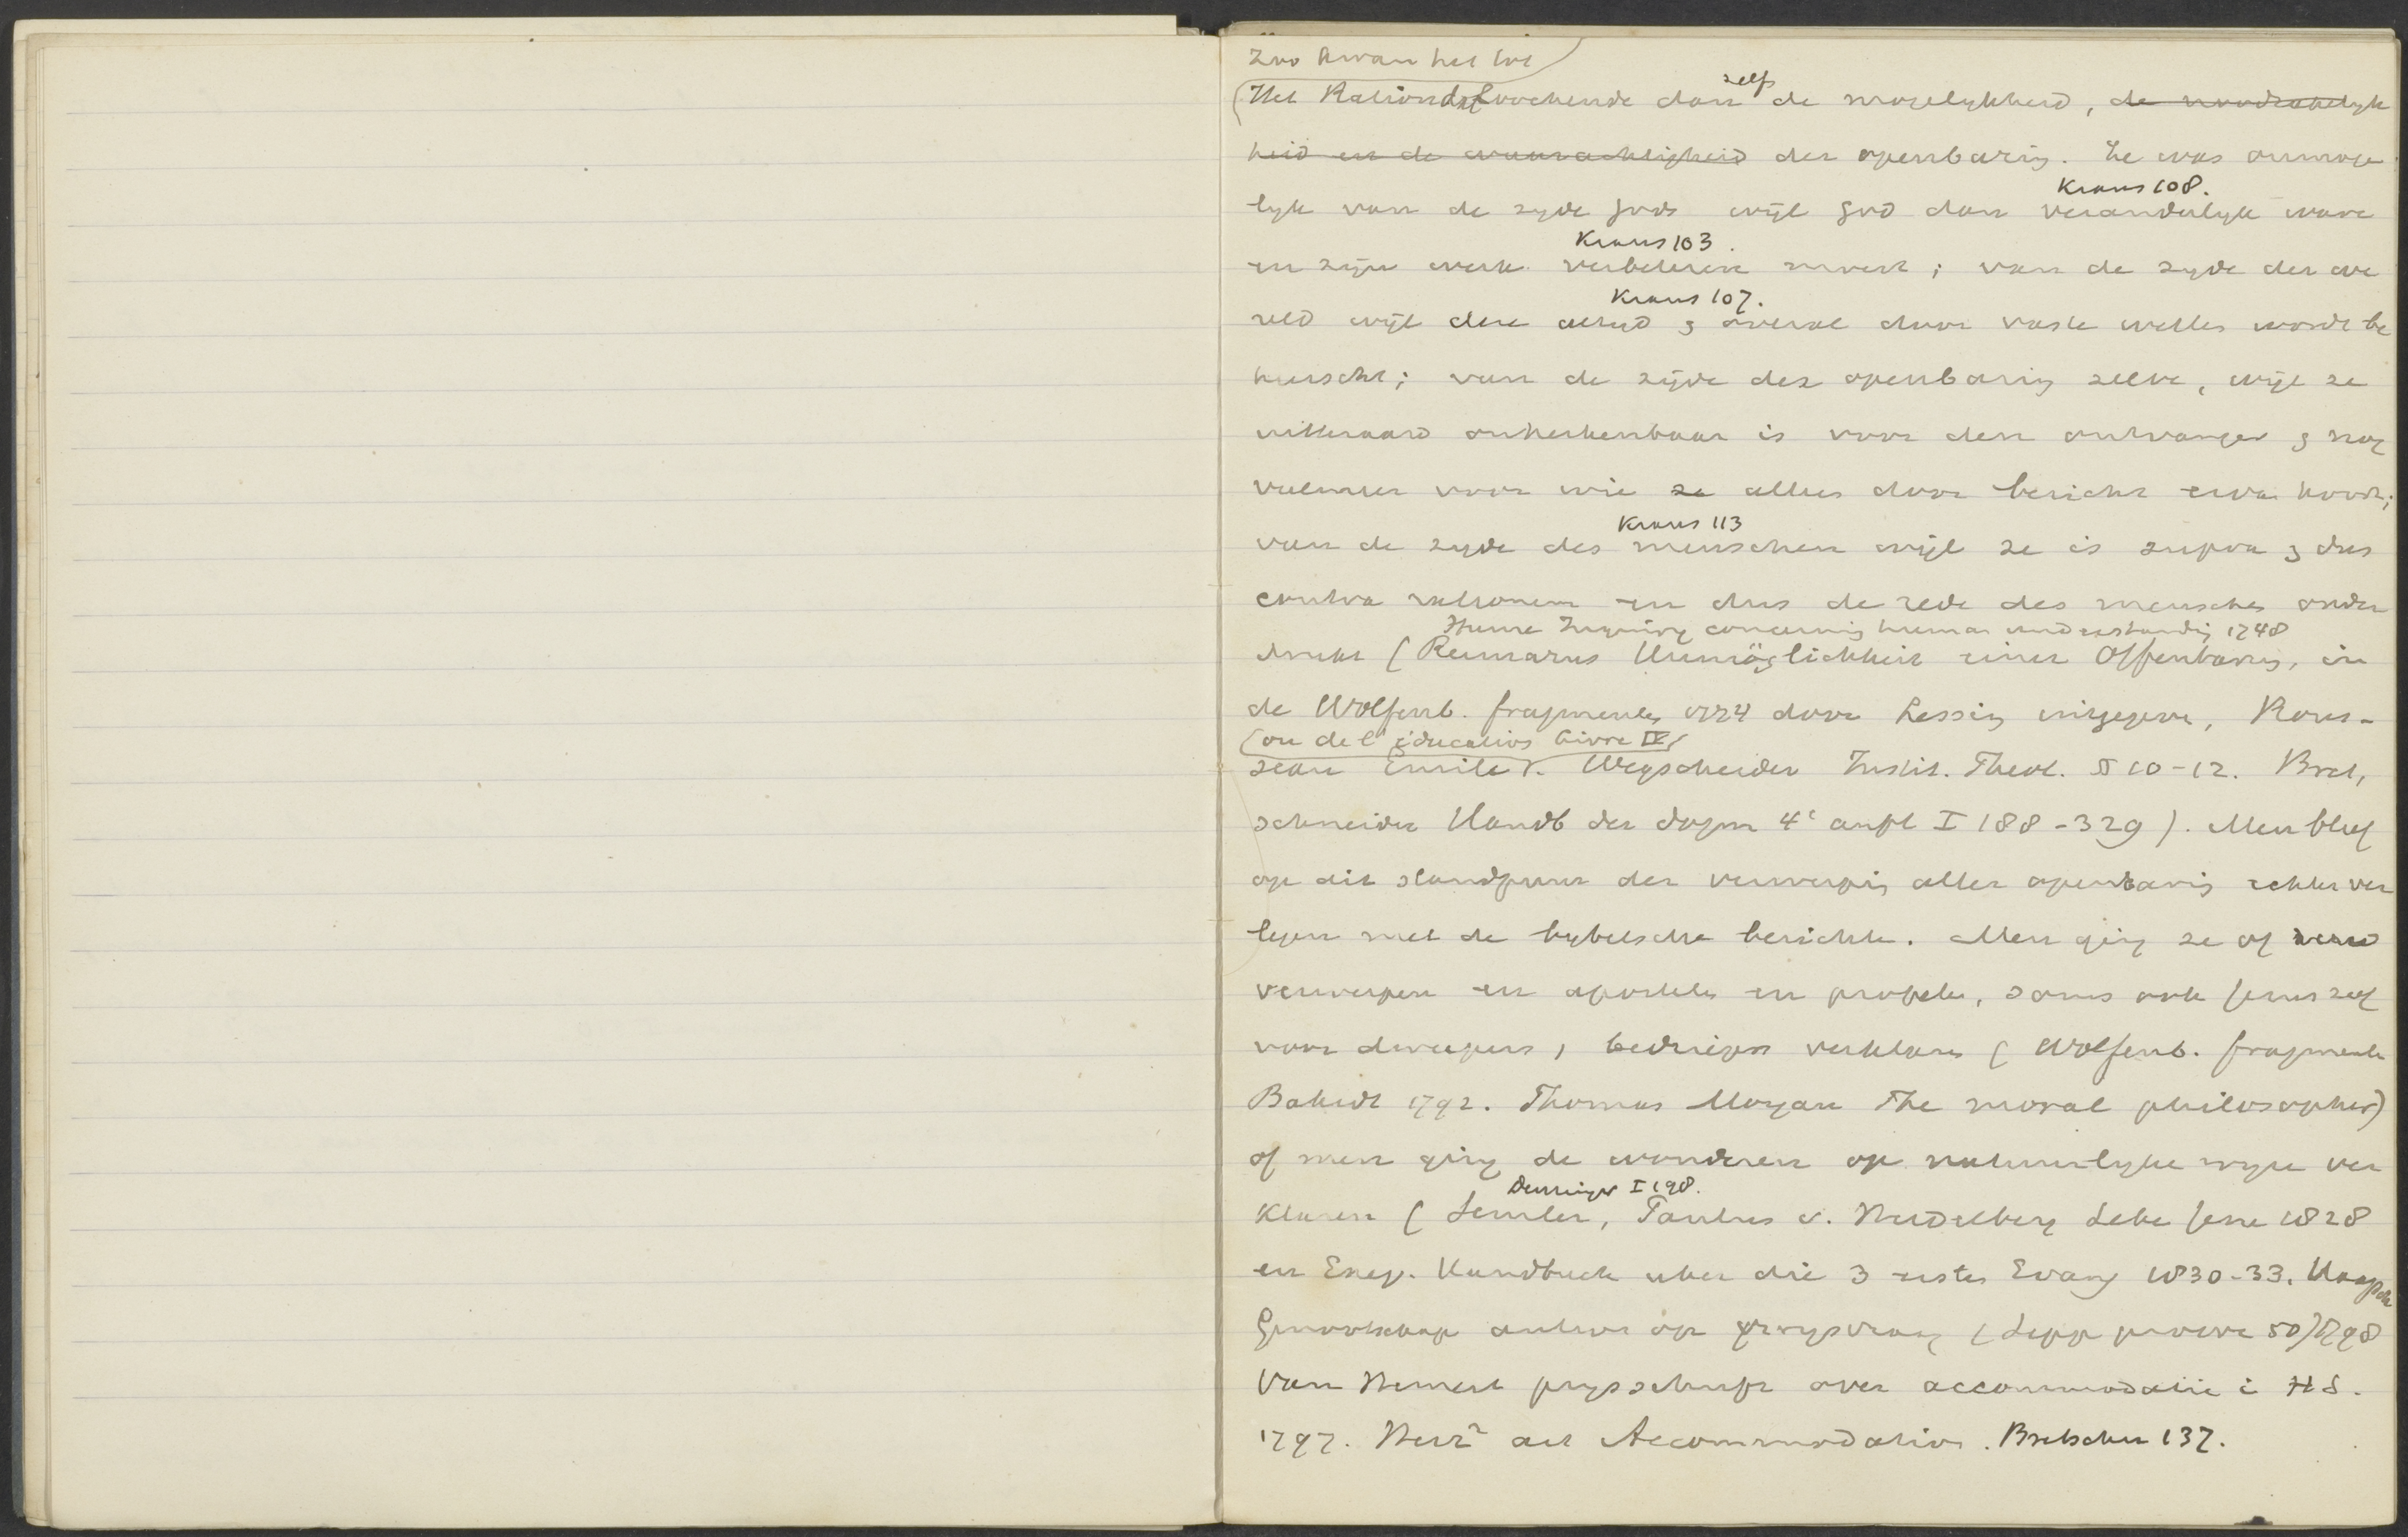 Zoo kwam het tot
zelfs
(Het Rationalsme loochende dan de mogelykheid, de noodzakelyk
heid en de waarachtigheid der openbaring. Ze was onmoge
Kraus 108.
lyk van de zyde Gods wijl God dan veranderlyk ware
Kraus 103.
en zijn werk verbeteren moest; van de zyde der we
Kraus 107.
reld wijl deze altyd & overal door vaste wetten wordt be
heerscht; van de zijde der openbaring zelve, wijl ze
uitteraard onherkenbaar is voor den ontvanger & nog
veelmeer voor wie ze alleen door bericht ervan hoort;
Kraus 113
van de zyde des menschen wijl ze is supra & dus
contra rationem en dus de rede des menschen onder
Hume Inquiry concerning human understanding 1748
drukt (Reimarus Unmöglichkeit einer Offenbarung, in
de Wolfenb. fragmenten 1774 door Lessing uitgegeven, Rous-
(ou de l'éducation livre IV)
seau Emile). Wegscheider Instit. Theol. §§ 10-12. Bret,
schneider Handb der dogm 4e aufl I 188-329). Men bleef
op dit standpunt der verwerping aller openbaring echter ver
legen met de bybelsche berichten. Men ging ze of
verwerpen en apostelen en profeten, soms ook Jezus zelf
voor dweepers, bedriegers verklaren (Wolfenb. fragmenten
Bahrdt 1792. Thomas Morgan The moral philosopher)
of men ging de wonderen op natuurlyke wyze ver
Denzinger I 198.
klaren (Semler, Paulus v. Heidelberg Leben Jesu 1828
en Exeg. Handbuch uber die 3 ersten Evang 1830-33. Haagsche
Genootschap antw op prysvraag (Sepp proeve 50) 1798
Van Hemert prysschrift over accommodatie i HS.
1797. Herz² art Accommodation. Bretschn 137.